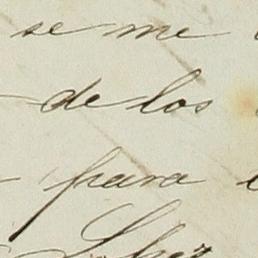 se me
de los
para
López